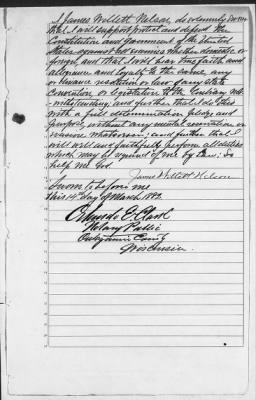 I James Willett Nelson, do solemnly swear
that I will support protect and defend the
Constitution and Government of the United
States against all enemies whether domestic or
foreign, and that I will bear true faith and
allegiance and loyalty to the same, any
ordinance resolution or law of any state
Convention or Legislature to the Contrary not-
withstanding; and further that I do this
with a full determination pledge and
purpose without any mental reservation or
evasion whatsoever; and further that I
will well and faithfully perform all duties
which may be required of me by law; So
help me God.
James Willett Nelson
Sworn before me
this 14th day of March 1892.
Orlando E Clark
Notary Public
Outagamie County
Wisconsin